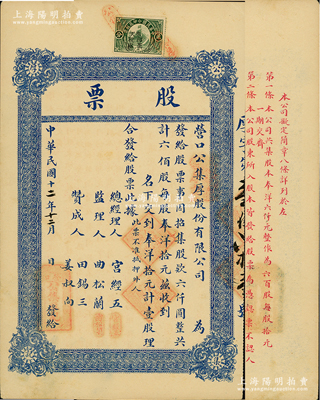 上海陽明拍賣
股票
營口公集厚股份有限公司 為
發給股票事因招集股款六仟圓整共
計六佰股每股奉洋拾元茲收到
名下交到奉洋拾元計壹股理
合發給股票此據 此票不准抵押外人
總經理人 宮經五
監理人 曲松蘭
田錫三
贊成人 姜叔向
中華民國十二年十二月 日 發給
本公司擬定簡章八條詳列於左
第一條 本公司共集股本奉洋六仟元整作為六百股每股拾元
一期交齊
第二條 本公司股東所入股本皆發給股票為憑認票不認人